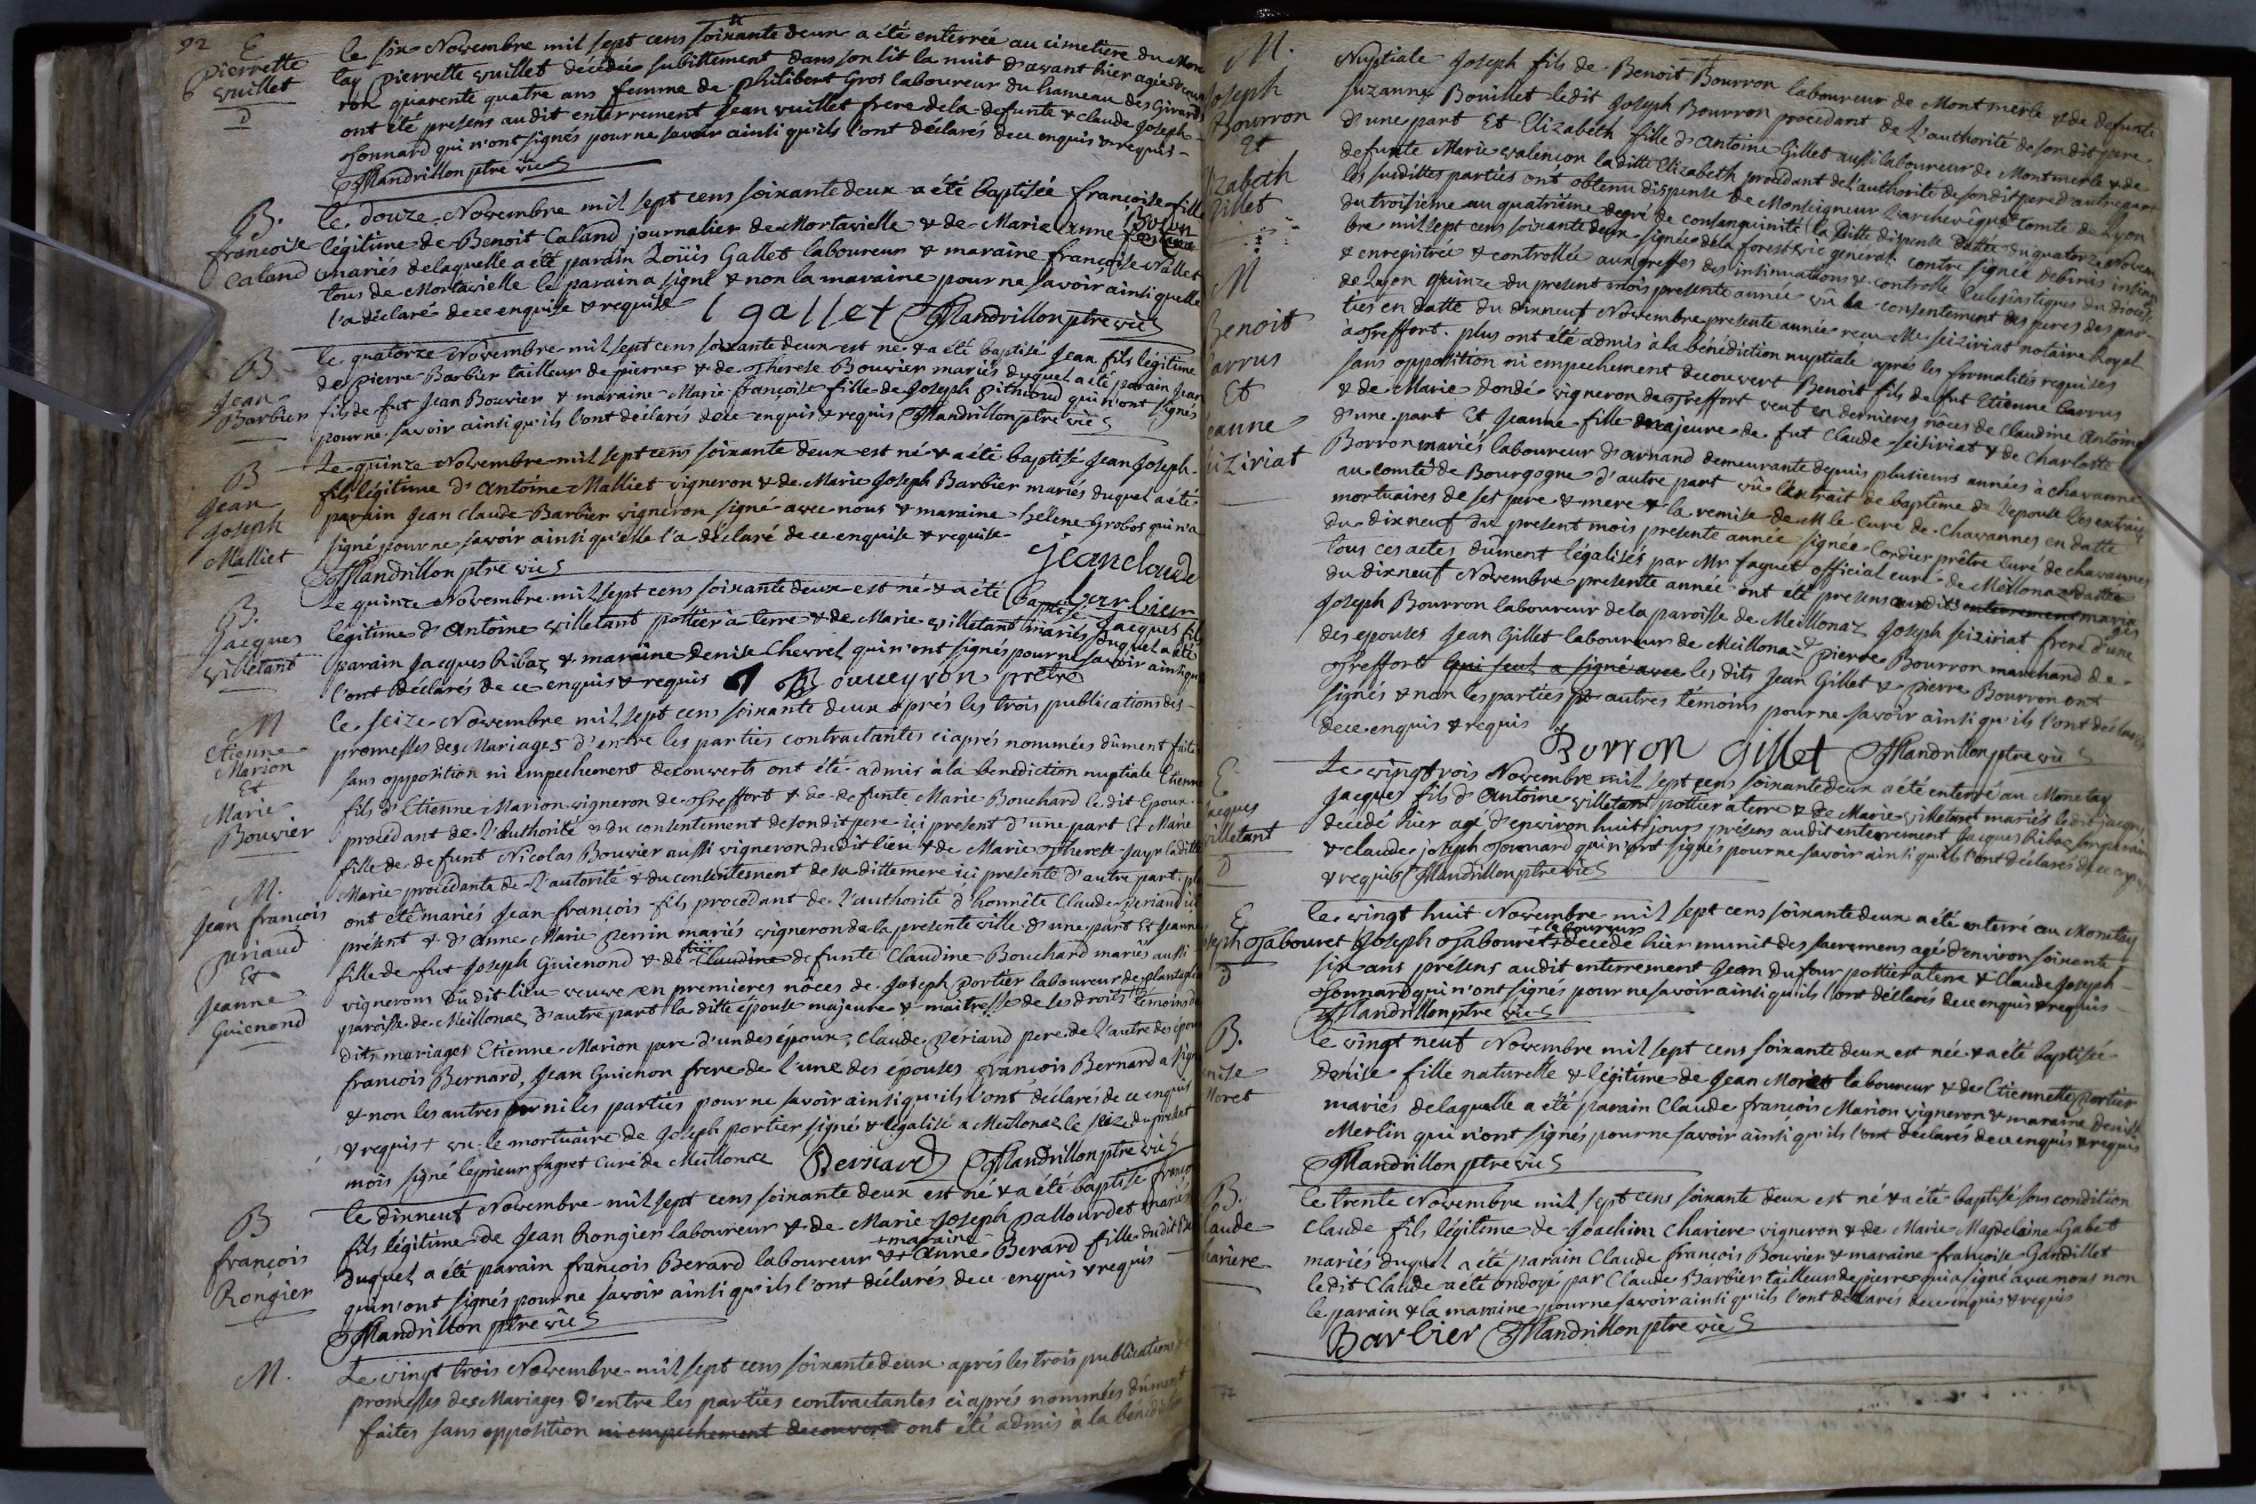 92
E
pierrette
vuillet
D
le six Novembre mil sept cens soixante deux a été enterrée au cimetiere du Mone
tay pierrette vuillet décédée subittement dans son lit la nuit d'avant hier agée d'envi
ron quarente quatre ans femme de philibert Gros laboureur du hameau des Girards
ont été presens audit enterrement Jean vuillet frere de la defunte & claude Joseph
Jonnard qui n'ont signés pour ne savoir ainsi qu'ils l'ont déclarés de ce enquis & requis
Mandrillon ptre vic
B.
francoise
Caland
le douze Novembre mil sept cens soixante deux a été baptisée francoise fille
légitime de Benoit Caland journalier de Mortavielle & de Marie Anne
mariés de laquelle a été parain Loüis Gallet laboureur & maraine françoise Nallet
tous de Mortavielle le parain a signé & non la maraine pour ne savoir ainsi quelle
l'a déclaré de ce enquise & requise l gallet Mandrillon ptre vic
B
Jean
Barbier
le quatorze Novembre mil sept cens soixante deux est né & a été baptisé Jean fils légitime
de pierre Barbier tailleur de pierres & de Therese Bouvier mariés duquel a été parain Jean
fils de fut Jean Bouvier & maraine Marie françoise fille de Joseph pitioud qui n'ont signés
pour ne savoir ainsi qu'ils l'ont déclarés de ce enquis & requis Mandrillon ptre vic
B
Jean
Joseph
Malliet
Le quinze Novembre mil sept cens soixante deux est né & a été baptisé Jean Joseph
fils légitime d'Antoine Malliet vigneron & de Marie Joseph Barbier mariés duquel a été
parain Jean Claude Barbier vigneron signé avec nous & maraine hélene Grobos qui n'a
signé pour ne savoir ainsi qu'elle l'a déclaré de ce enquise & requise
jean claude
barbier
Mandrillon ptre vic
B.
Jacques
villetant
Le quinze Novembre mil sept cens soixante deux est né & a été baptisé Jacques fils
légitime d'Antoine villetant pottier a terre & de Marie villetant mariés duquel a été
parain Jacques Ribaz & maraine Denise Chevrel qui n'ont signés pour ne savoir ainsi qu'ils
l'ont déclarés de ce enquis & requis Bouveyron prêtre
M
Etienne
Marion
Et
Marie
Bouvier
le seize Novembre mil sept cens soixante deux après les trois publications des
promesses des Mariages d'entre les parties contractantes ci après nommées dûment faites
sans opposition ni empechement decouverts ont été admis à la benediction nuptiale Etienne
fils d'Etienne Marion vigneron de Treffort & de defunte Marie Bouchard le dit Epoux
procédant de l'authorité & du consentement de son dit pere ici present d'une part Et Marie
fille de defunt Nicolas Bouvier aussi vigneron dudit lieu & de Marie Therese Jayr la ditte
Marie procedante de l'autorité & du consentement de sa ditte mere ici presente d'autre part plus
M.
Jean françois
periaud
Et
Jeanne
Guienond
ont été mariés Jean françois fils procedant de l'authorité d'honnête Claude periaud ici
présent & d'Anne Marie perrin mariés vigneron de la presente ville d'une part Et Jeanne
fille de fut Joseph Guienond & de Claudine defunte Claudine Bouchard mariés aussi
vignerons dudit lieu veuve en premieres nôces de Joseph portier laboureur de plantaglai
paroisse de Meillonaz d'autre part la ditte épouse majeure & maitresse de ses droits témoins des
dits mariages Etienne Marion pere d'un des époux, claude périaud pere de l'autre des époux
francois Bernard, Jean Guienon frere de l'une des épouses françois Bernard a signé
& non les autres ni les parties pour ne savoir ainsi qu'ils l'ont déclarés de ce enquis
& requis + vu le mortuaire de Joseph portier signé & légalisé a Meillonaz le seize du present
mois signé le prieur faguet curé de Meillonaz Bernard Mandrillon ptre vic
B
françois
Rongier
le dixneuf Novembre mil sept cens soixante deux est né & a été baptisé françois
fils légitime de Jean Rongier laboureur & de Marie Joseph pallourdet mariés
duquel a été parain françois Berard laboureur & + maraine Anne Berard fille dudit
qui n'ont signés pour ne savoir ainsi qu'ils l'ont déclarés de ce enquis & requis
Mandrillon ptre vic
M.
Le vingt trois Novembre mil sept cens soixante deux aprés les trois publications
promesses des Mariages d'entre les parties contractantes ci aprés nommées dûment
faites sans opposition ni empechement decouvert ont été admis à la bénédiction
M.
Joseph
Bourron
Et
Elizabeth
Gillet
Nuptiale Joseph fils de Benoit Bourron laboureur de Montmerle & de defunte
Suzanne Bouillet ledit Joseph Bourron procedant de l'authorité de son dit pere
d'une part Et Elizabeth fille d'Antoine Gillet aussi laboureur de Montmerle & de
defunte Marie valencon la ditte Elizabeth procédant de l'authorité de son dit pere d'autre part
les susdittes parties ont obtenu dispense de Monseigneur l'archevêque Comte de Lyon
du troisieme au quatrieme degré de consanguinité la ditte dispense dattée du quatorze Novem
bre mil sept cens soixante deux signée de la forest vic general contre signée
& enregistrée & controllée aux greffes des insinuations & controlle Eclesiastiques du diocèse
de Lyon quinze du present mois presente année vû le consentement des peres des par
ties en datte du dixneuf Novembre presente année recu Me seiziriat notaire Royal
M
Benoit
Carrus
Et
Jeanne
seiziriat
à Treffort. plus ont été admis à la bénédiction nuptiale aprés les formalités requises
sans opposition ni empechement decouvert Benoit fils de fut Etienne Carrus
& de Marie Dondé vigneron de Treffort veuf en dernieres nôces de Claudine Antoine
d'une part Et Jeanne fille majeure de fut Claude seiziriat & de Charlotte
Borron mariés laboureur d'arnand demeurante depuis plusieurs années à chavanne
au comté de Bourgogne d'autre part vû l'extrait de baptême de l'epouse les extraits
mortuaires de ses pere & mere & la remise de M le curé de Chavannes en datte
du dixneuf du present mois presente année signée Cordier prêtre curé de chavannes
tous ces actes dûment légalisés par Mr faguet official curé de Meillonaz dattée
du dixneuf Novembre presente année ont été presens audits enterrement mariages
Joseph Bourron laboureur de la paroisse de Meillonaz Joseph seiziriat frere d'une
des epouses Jean Gillet laboureur de Meillonaz & pierre Bourron marchand de
Treffort qui seul a signé avec les dits Jean Gillet & pierre Bourron ont
signés & non les parties & autres témoins pour ne savoir ainsi qu'ils l'ont déclarés
de ce enquis & requis
Borron Gillet Mandrillon ptre vic
E
Jacques
villetant
D
Le vingt trois Novembre mil sept cens soixante deux a été enterré au Monetay
Jacques fils d'Antoine villetant pottier a terre & de Marie villetant mariés ledit jacques
decedé hier agé d'environ huit jours présens audit enterrement Jacques Ribaz son parain
& claude joseph Jonnard qui n'ont signés pour ne savoir ainsi qu'ils l'ont déclarés de ce enquis
& requis Mandrillon ptre vic
E
Joseph Tabouret
D
le vingt huit Novembre mil sept cens soixante deux a été enterré au Monetay
Joseph Tabouret + laboureur decedé hier munit des sacremens agé d'environ soixante
six ans présens audit enterrement Jean dufour pottier a terre & Claude Joseph
Jonnard qui n'ont signés pour ne savoir ainsi qu'ils l'ont déclarés de ce enquis & requis
Mandrillon ptre vic
B.
Denise
Moret
le vingt neuf Novembre mil sept cens soixante deux est née & a été baptisée
Denise fille naturelle & légitime de Jean Moret laboureur & de Etiennette portier
mariés de laquelle a été parain Claude françois Marion vigneron & maraine Denise
Merlin qui n'ont signés pour ne savoir ainsi qu'ils l'ont déclarés de ce enquis & requis
Mandrillon ptre vic
B.
Claude
Chariere
le trente Novembre mil sept cens soixante deux est né & a été baptisé sous condition
Claude fils légitime de Joachim Chariere vigneron & de Marie Magdelaine Gabet
mariés duquel a été parain Claude françois Bouvier & maraine françoise Gandillet
ledit Claude a été ondoyé par Claude Barbier tailleur de pierre qui a signé avec nous non
le parain & la maraine pour ne savoir ainsi qu'ils l'ont déclarés de ce enquis & requis
Barbier Mandrillon ptre vic